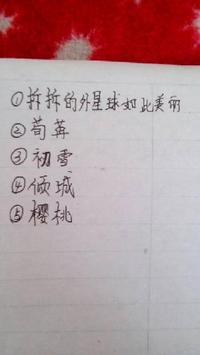 ①拆拆的外星球如此美丽
②荀苒
③初雪
④倾城
⑤樱桃